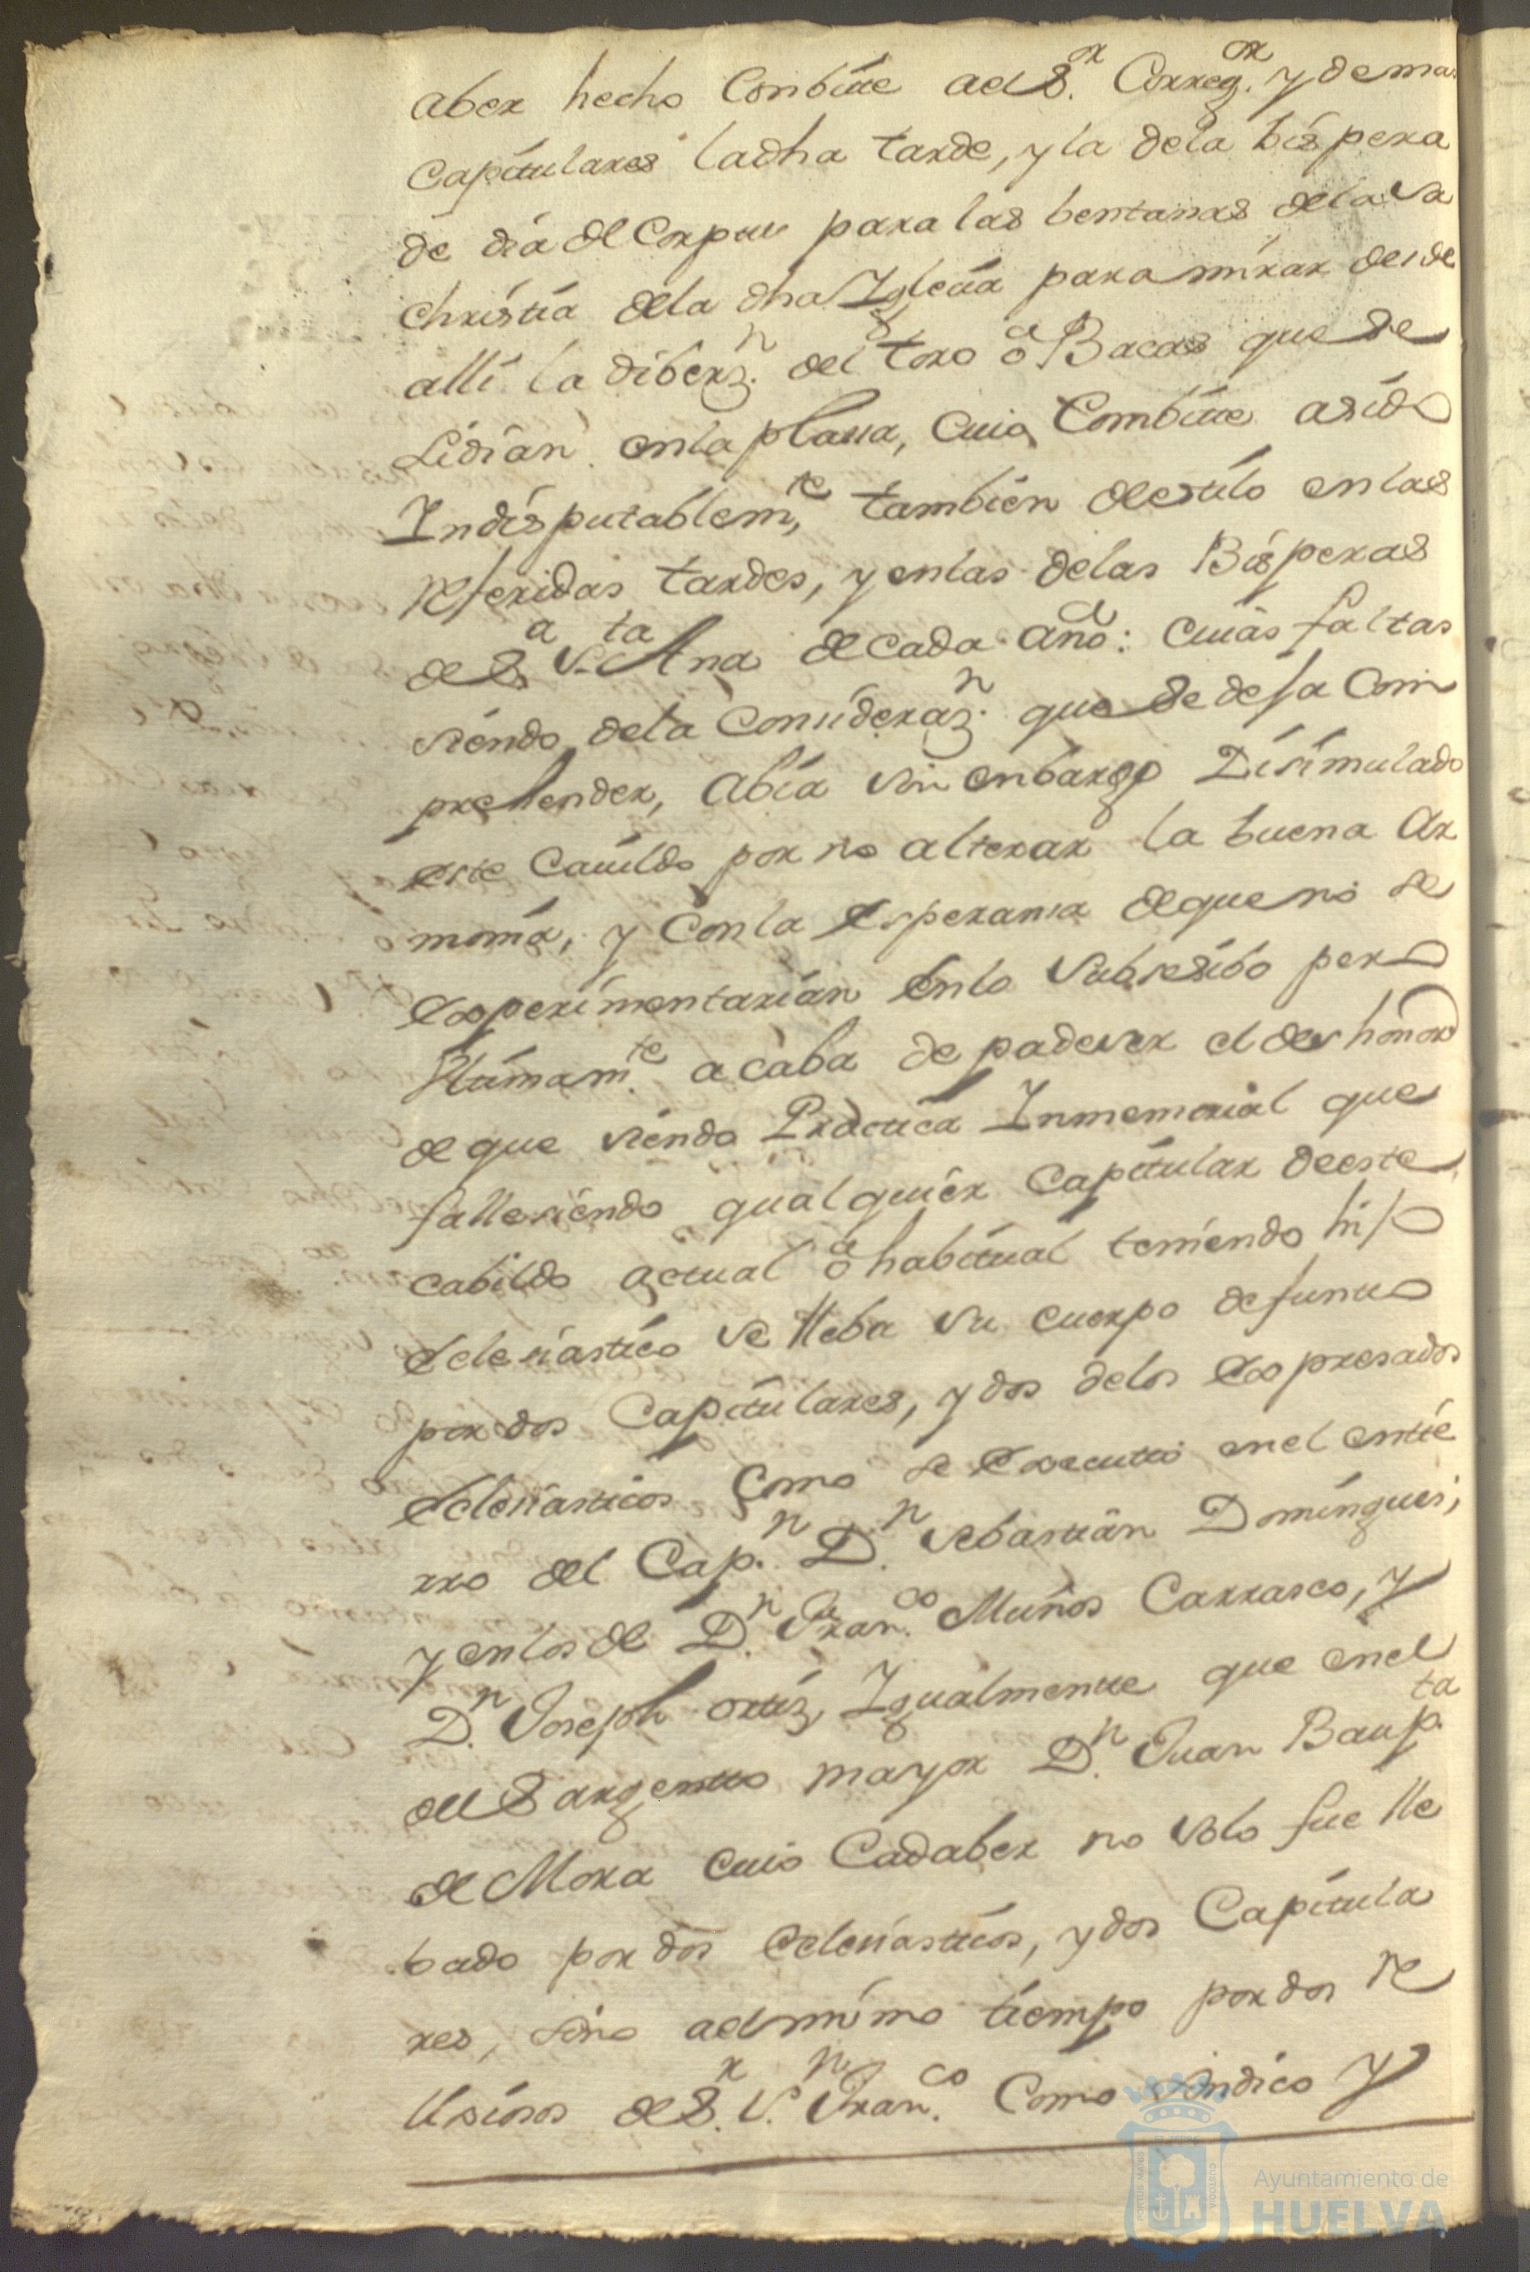 aber hecho Conbitte ael S.or Correg.or y demas
capitulares la dha tarde, y la de la bispera
de dia del Corpus para las bentanas de la Sa
christia de la dha Iglecia para mirar desde
alli la diberz.n del toro o Bacas que se
Lidian en la plassa, cuio Combitte a sido
Indisputablem.te tambien de estilo en las
referidas tardes, y en las de las Bisperas
de S.a S.ta Ana de cada año: cuias faltas
siendo de la Considéraz.n que se desa Com
prehender, Abia sin enbargo Disimulado
este Cauildo por no alterar la buena Ar
monia, y Con la esperansa de que no se
experimentarian en lo Subsesibo pero
Ultimam.te acaba de padeser el deshonor
de que siendo Practica Inmemorial que
fallesiendo qualquier Capitular de este
cabildo actual o habitual teniendo hijo
Eclesiastico se lleba su cuerpo defunto
por dos Capitulares, y dos de los expresados
Eclesiasticos Como se executto en el entie
rro del Cap.n D.n Sebastian Domingues,
y en los de D.n Fran.co Muños Carrasco, y
D.n Joseph ortiz, Igualmente que en el
del Sargentto mayor D.n Juan Baup.ta
de Mora cuio Cadaber no solo fue lle
bado por dos Eclesiasticos, y dos Capitula
res, sino ael mismo tiempo por dos re
lijiosos de S.r S.n Fran.co Como Sindico y
Ayuntamiento de
HUELVA